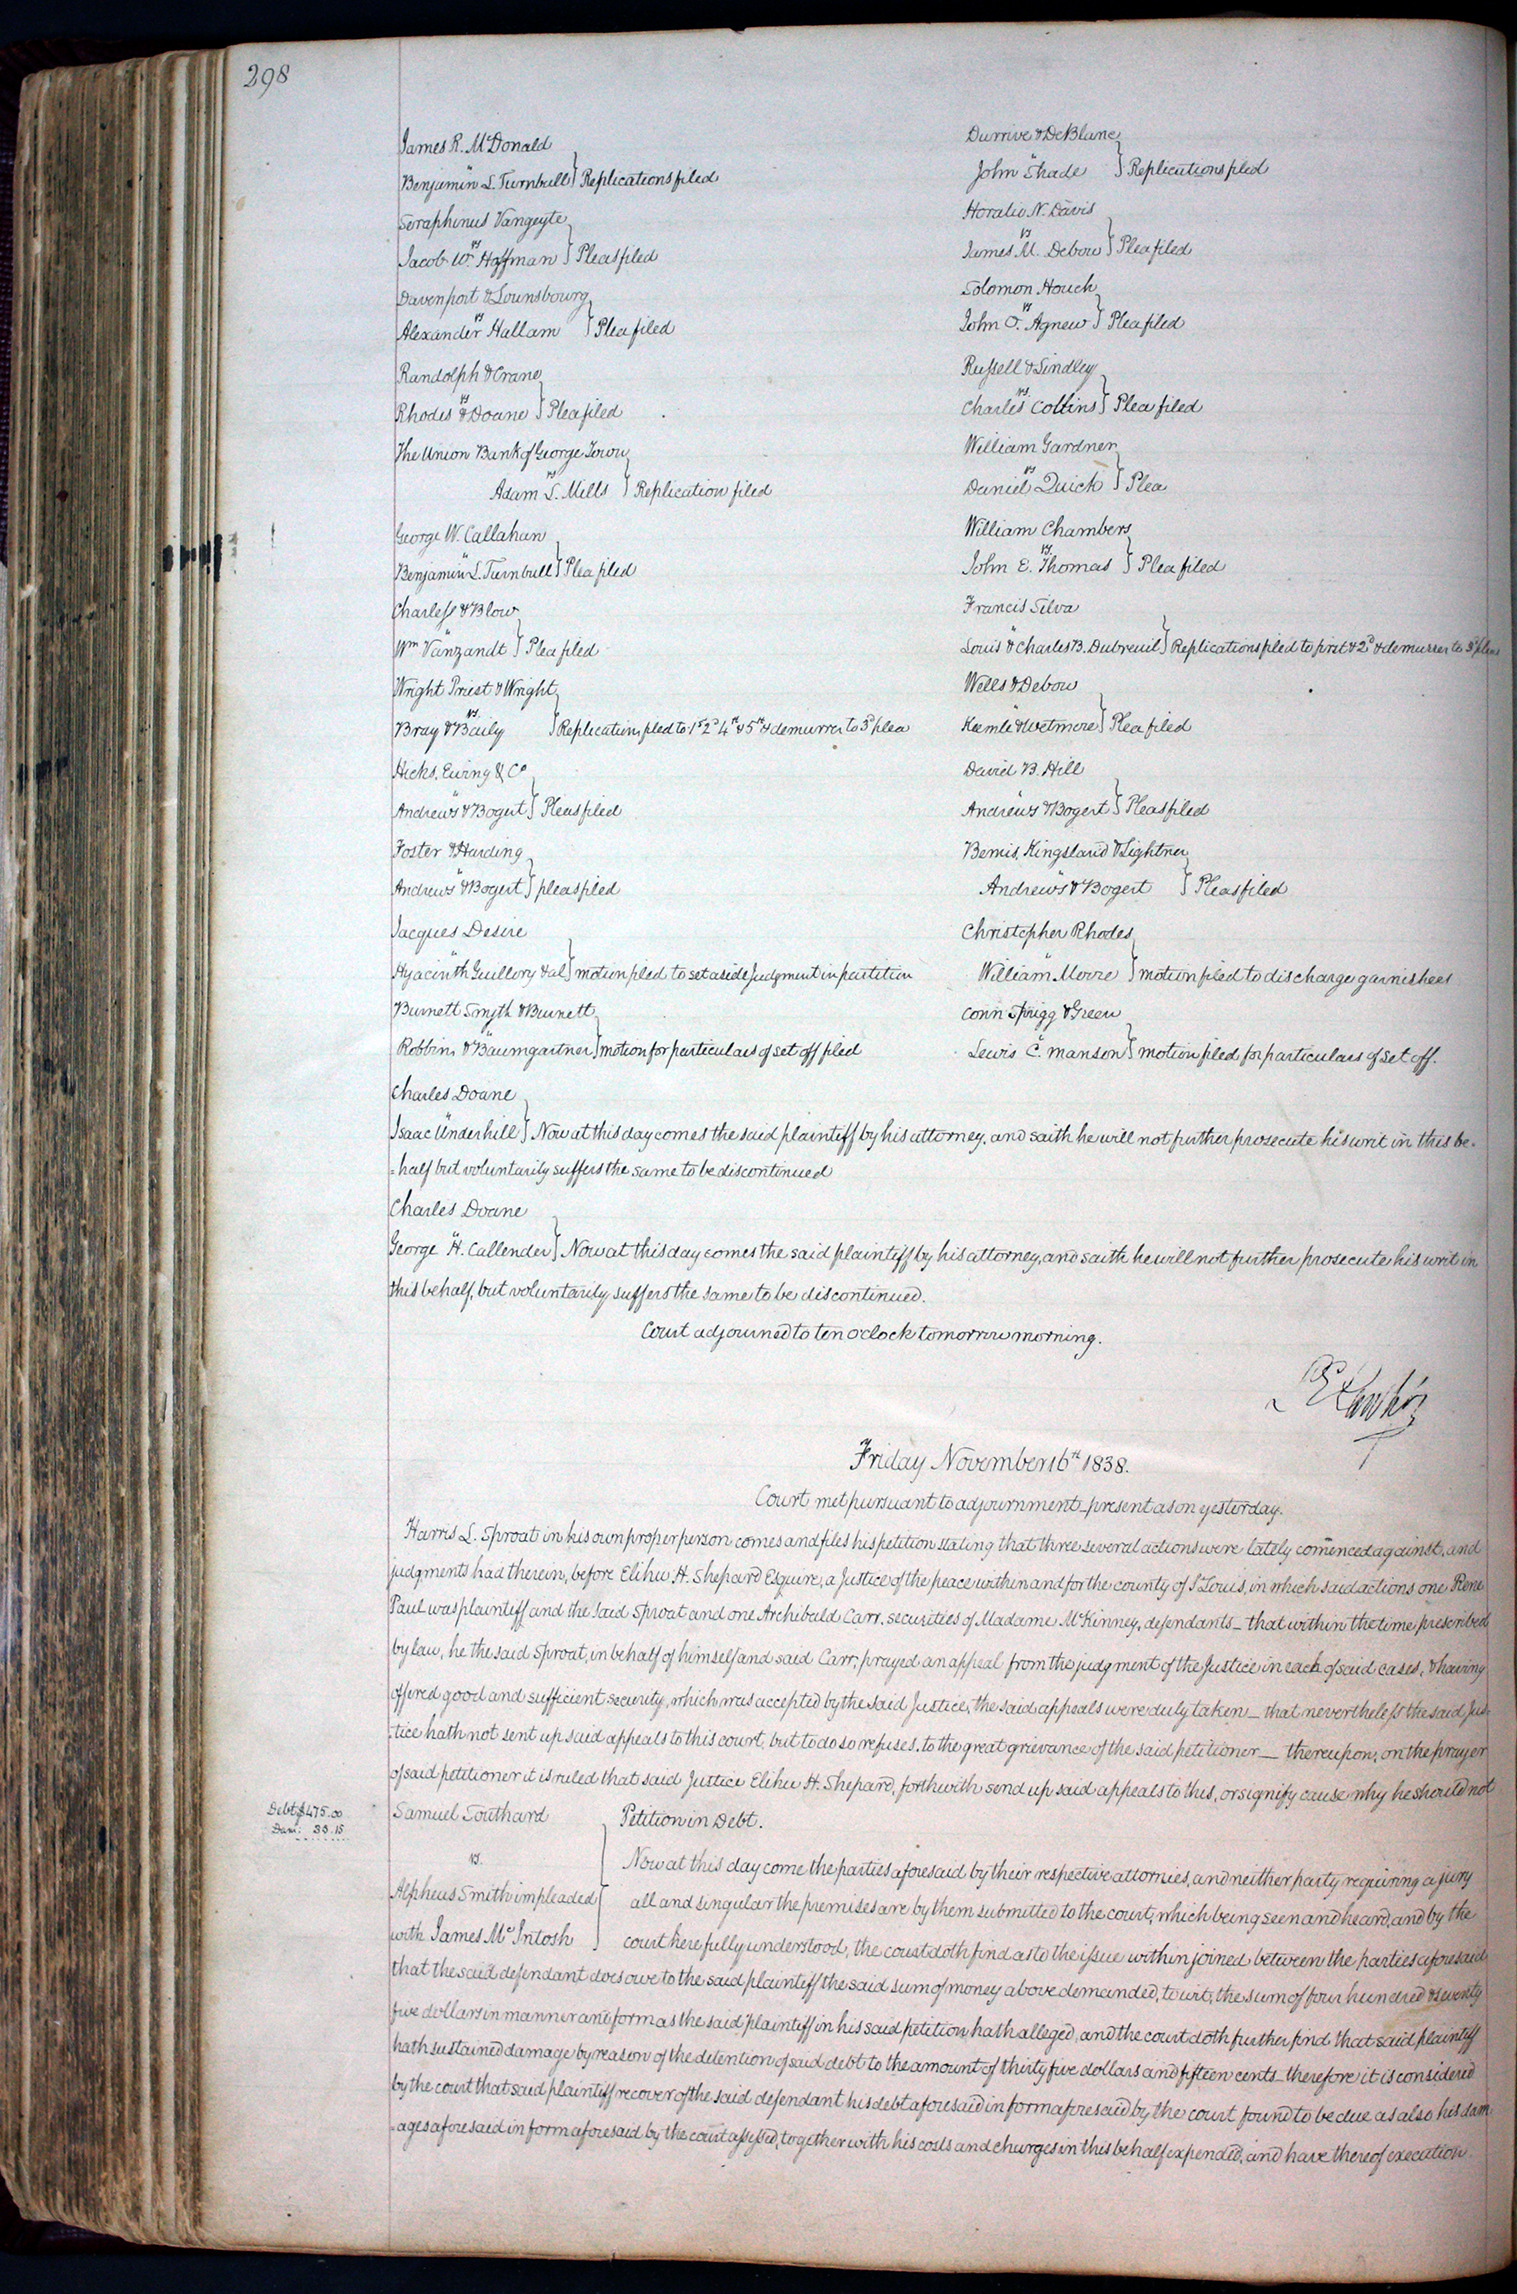 298
James R. McDonald
"
Benjamin L. Turnbull } Replications filed
Seraphinus Vangeyte
vs
Jacob W. Hoffman } Pleas filed
Davenport & Lounsbourg
vs
Alexander Hallam } Plea filed
Randolph & Crane
vs
Rhodes & Doane } Plea filed
The Union Bank of George Town
vs
Adam L. Mills } Replication filed
George W. Callahan
"
Benjamin L. Turnbull } Plea filed
Charless & Blow
"
Wm Vanzandt } Plea filed
Wright Priest & Wright
vs
Bray & Baily } Replication filed to 1st 2d 4th & 5th & demurrer to 3d plea
Hicks, Ewing & Co
"
Andrews & Bogert } Pleas filed
Foster & Harding
"
Andrews & Bogert } pleas filed
Jacques Desire
"
Hyacinth Guillory & al } motion filed to set aside Judgment in partition
Burnett Smyth & Burnett
"
Robbins & Baumgartner } motion for particulars of set off filed
Durrive & DeBlane
"
John Shade } Replications filed
Horatio N. Davis
vs
James M. Debow } Plea filed
Solomon Houck
vs
John O. Agnew } Plea filed
Russell & Lindley
vs.
Charles Collins } Plea filed
William Gardner
vs
Daniel Quick } Plea
William Chambers
vs.
John E. Thomas } Plea filed
Francis Silva
"
Louis & Charles B. Dubreuil } Replications filed to first & 2d & demurrer to 3d pleas
Wells & Debow
"
Keemle & Wetmore } Plea filed
David B. Hill
"
Andrews & Bogert } Pleas filed
Bemis, Kingsland & Lightner
"
Andrews & Bogert } Pleas filed
Christopher Rhodes
"
William Moore } motion filed to discharge garnishees
Conn Sprigg & Green
"
Lewis C. Manson } motion filed for particulars of set off.
Charles Doane
"
Isaac Underhill } Now at this day comes the said plaintiff by his attorney, and saith he will not further prosecute his writ in this be-
=half but voluntarily suffers the same to be discontinued
Charles Doane
"
George H. Callender } Now at this day comes the said plaintiff by his attorney, and saith he will not further prosecute his writ in
this behalf, but voluntarily suffers the same to be discontinued.
Court adjourned to ten o'clock tomorrow morning.
Friday November 16th 1838.
Court met pursuant to adjournment_ present as on yesterday.
Harris L. Sproat in his own proper person comes and files his petition stating that three several actions were lately comenced against, and
judgments had therein, before Elihu H. Shepard Esquire, a Justice of the peace within and for the county of St Louis, in which said actions one Rene
Paul was plaintiff and the said Sproat and one Archibald Carr, securities of Madame McKinney, defendants_ that within the time prescribed
by law, he the said Sproat, in behalf of himself and said Carr, prayed an appeal from the judgment of the Justice in each of said cases, & having
offered good and sufficient security, which was accepted by the said Justice, the said appeals were duly taken_ that nevertheless the said Jus-
-tice hath not sent up said appeals to this court, but to do so refuses, to the great grievance of the said petitioner_ thereupon, on the prayer
of said petitioner it is ruled that said Justice Elihu H. Shepard, forthwith send up said appeals to this, or signify cause why he should not
Debt $475.00
Dam: 35.15
Samuel Southard
vs.
Alpheus Smith impleaded
with James McIntosh
Petition in Debt.
Now at this day come the parties aforesaid by their respective attornies, and neither party requiring a jury
all and singular the premises are by them submitted to the court, which being seen and heard, and by the
court here fully understood, the court doth find as to the issue within joined between the parties aforesaid
that the said defendant does owe to the said plaintiff the said sum of money above demanded, to wit, the sum of four hundred & seventy
five dollars in manner and form as the said plaintiff in his said petition hath alleged, and the court doth further find that said plaintiff
hath sustained damage by reason of the detention of said debt to the amount of thirty five dollars and fifteen cents_ therefore it is considered
by the court that said plaintiff recover of the said defendant his debt aforesaid in form aforesaid by the court found to be due as also his dam
=ages aforesaid in form aforesaid by the court assessed, together with his costs and charges in this behalf expended, and have thereof execution.